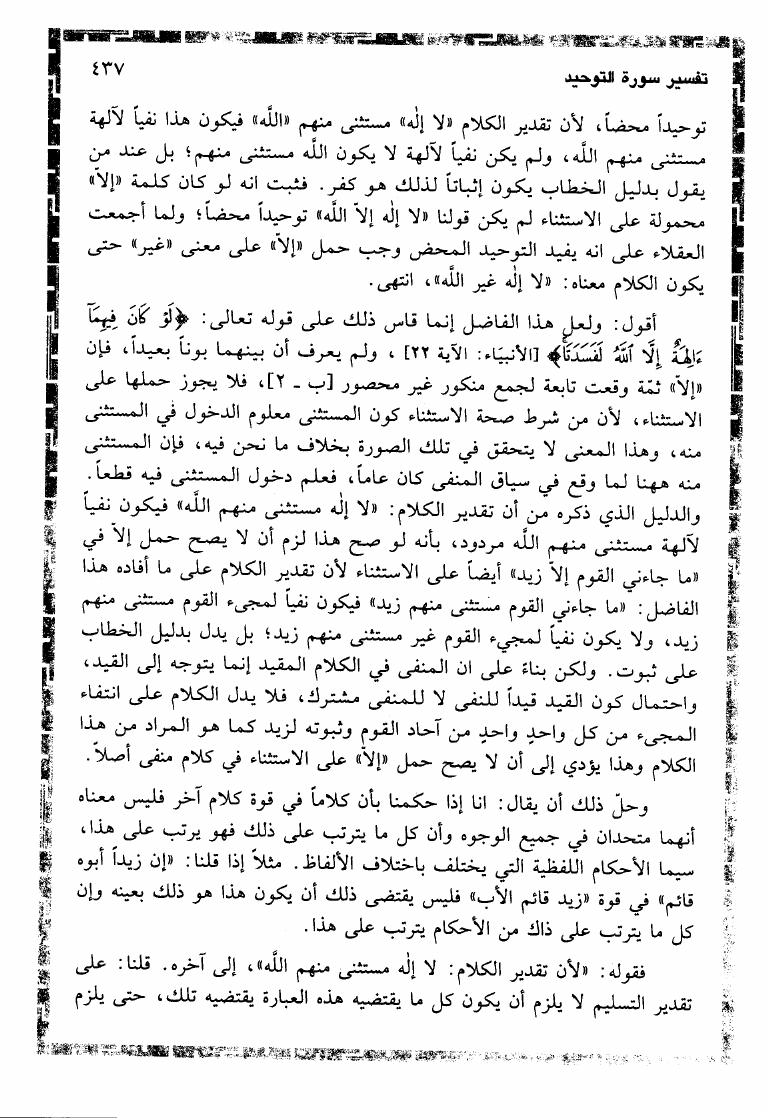 تفسير سورة التوحيد
٤٣٧
توحيداً محضاً، لأن تقدير الكلام «لا إلٰه» مستثنى منهم «اللَّه» فيكون هذا نفياً لآلهة
مستثنى منهم اللَّه، ولم يكن نفياً لآلهة لا يكون اللَّه مستثنى منهم؛ بل عند من
يقول بدليل الخطاب يكون إثباتاً لذلك هو كفر. فثبت انه لو كان كلمة «إلاّ»
محمولة على الاستثناء لم يكن قولنا «لا إلٰه إلاّ اللَّه» توحيداً محضاً؛ ولما أجمعت
العقلاء على انه يفيد التوحيد المحض وجب حمل «إلاّ» على معنى «غير» حتى
يكون الكلام معناه: «لا إلٰه غير اللَّه»، انتهى.
أقول: ولعل هذا الفاضل إنما قاس ذلك على قوله تعالى: ﴿لَوْ كَانَ فِيهِمَآ
ءَالِهَةٌ إِلَّا ٱللَّهُ لَفَسَدَتَا﴾ [الأنبيَاء: الآية ٢٢] ، ولم يعرف أن بينهما بوناً بعيداً، فإن
«إلاّ» ثمّة وقعت تابعة لجمع منكور غير محصور [ب ـ ٢]، فلا يجوز حملها على
الاستثناء، لأن من شرط صحة الاستثناء كون المستثنى معلوم الدخول في المستثنى
منه، وهذا المعنى لا يتحقق في تلك الصورة بخلاف ما نحن فيه، فإن المستثنى
منه ههنا لما وقع في سياق المنفى كان عاماً، فعلم دخول المستثنى فيه قطعاً.
والدليل الذي ذكره من أن تقدير الكلام: «لا إلٰه مستثنى منهم اللَّه» فيكون نفياً
لآلهة مستثنى منهم اللَّه مردود، بأنه لو صح هذا لزم أن لا يصح حمل إلاّ في
«ما جاءني القوم إلاّ زيد» أيضاً على الاستثناء لأن تقدير الكلام على ما أفاده هذا
الفاضل: «ما جاءني القوم مستثنى منهم زيد» فيكون نفياً لمجيء القوم مستثنى منهم
زيد، ولا يكون نفياً لمجيء القوم غير مستثنى منهم زيد؛ بل يدل بدليل الخطاب
على ثبوت. ولكن بناءً على ان المنفى في الكلام المقيد إنما يتوجه إلى القيد،
واحتمال كون القيد قيداً للنفى لا للمنفى مشترك، فلا يدل الكلام على انتفاء
المجيء من كل واحدٍ واحدٍ من آحاد القوم وثبوته لزيد كما هو المراد من هذا
الكلام وهذا يؤدي إلى أن لا يصح حمل «إلاّ» على الاستثناء في كلام منفى أصلاً.
وحلّ ذلك أن يقال: انا إذا حكمنا بأن كلاماً في قوة كلام آخر فليس معناه
أنهما متحدان في جميع الوجوه وأن كل ما يترتب على ذلك فهو يرتب على هذا،
سيما الأحكام اللفظية التي يختلف باختلاف الألفاظ. مثلاً إذا قلنا: «إن زيداً أبوه
قائم» في قوة «زيد قائم الأب» فليس يقتضى ذلك أن يكون هذا هو ذلك بعينه وإن
كل ما يترتب على ذاك من الأحكام يترتب على هذا.
فقوله: «لأن تقدير الكلام: لا إلٰه مستثنى منهم اللَّه»، إلى آخره. قلنا: على
تقدير التسليم لا يلزم أن يكون كل ما يقتضيه هذه العبارة يقتضيه تلك، حتى يلزم